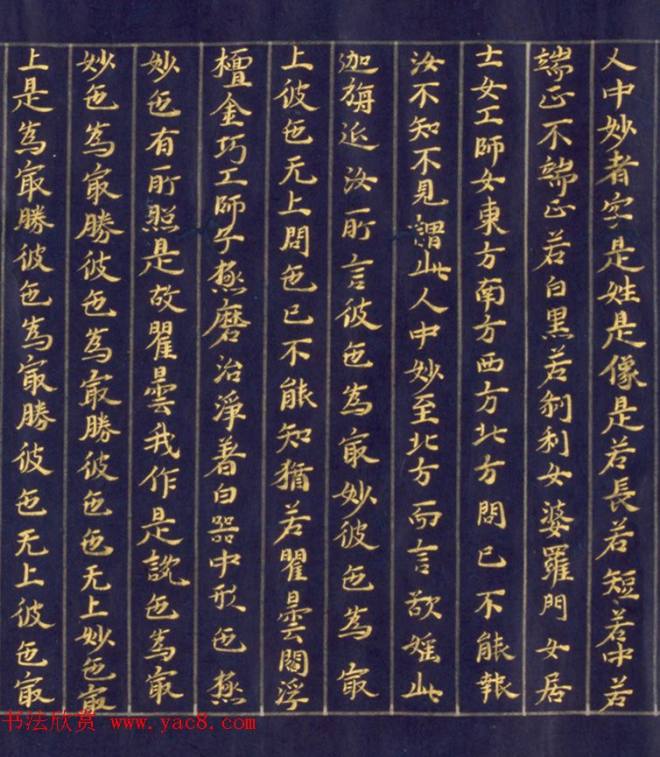 人中妙者字是姓是像是若長若短若中若
端正不端正若白黑若刹利女婆羅門女居
士女工師女東方南方西方北方問已不能報
汝不知不見謂此人中妙至北方而言欲婬此
迦旃延汝所言彼色為㝡妙彼色為㝡
上彼色无上問色已不能知猶若瞿曇閻浮
檀金巧工師子極磨治淨著白器中形色極
妙色有所照是故瞿曇我作是說色為㝡
妙色為㝡勝彼色為㝡勝彼色色无上妙色㝡
上是為㝡勝彼色為㝡勝彼色无上彼色㝡
书法欣赏 www.yac8.com